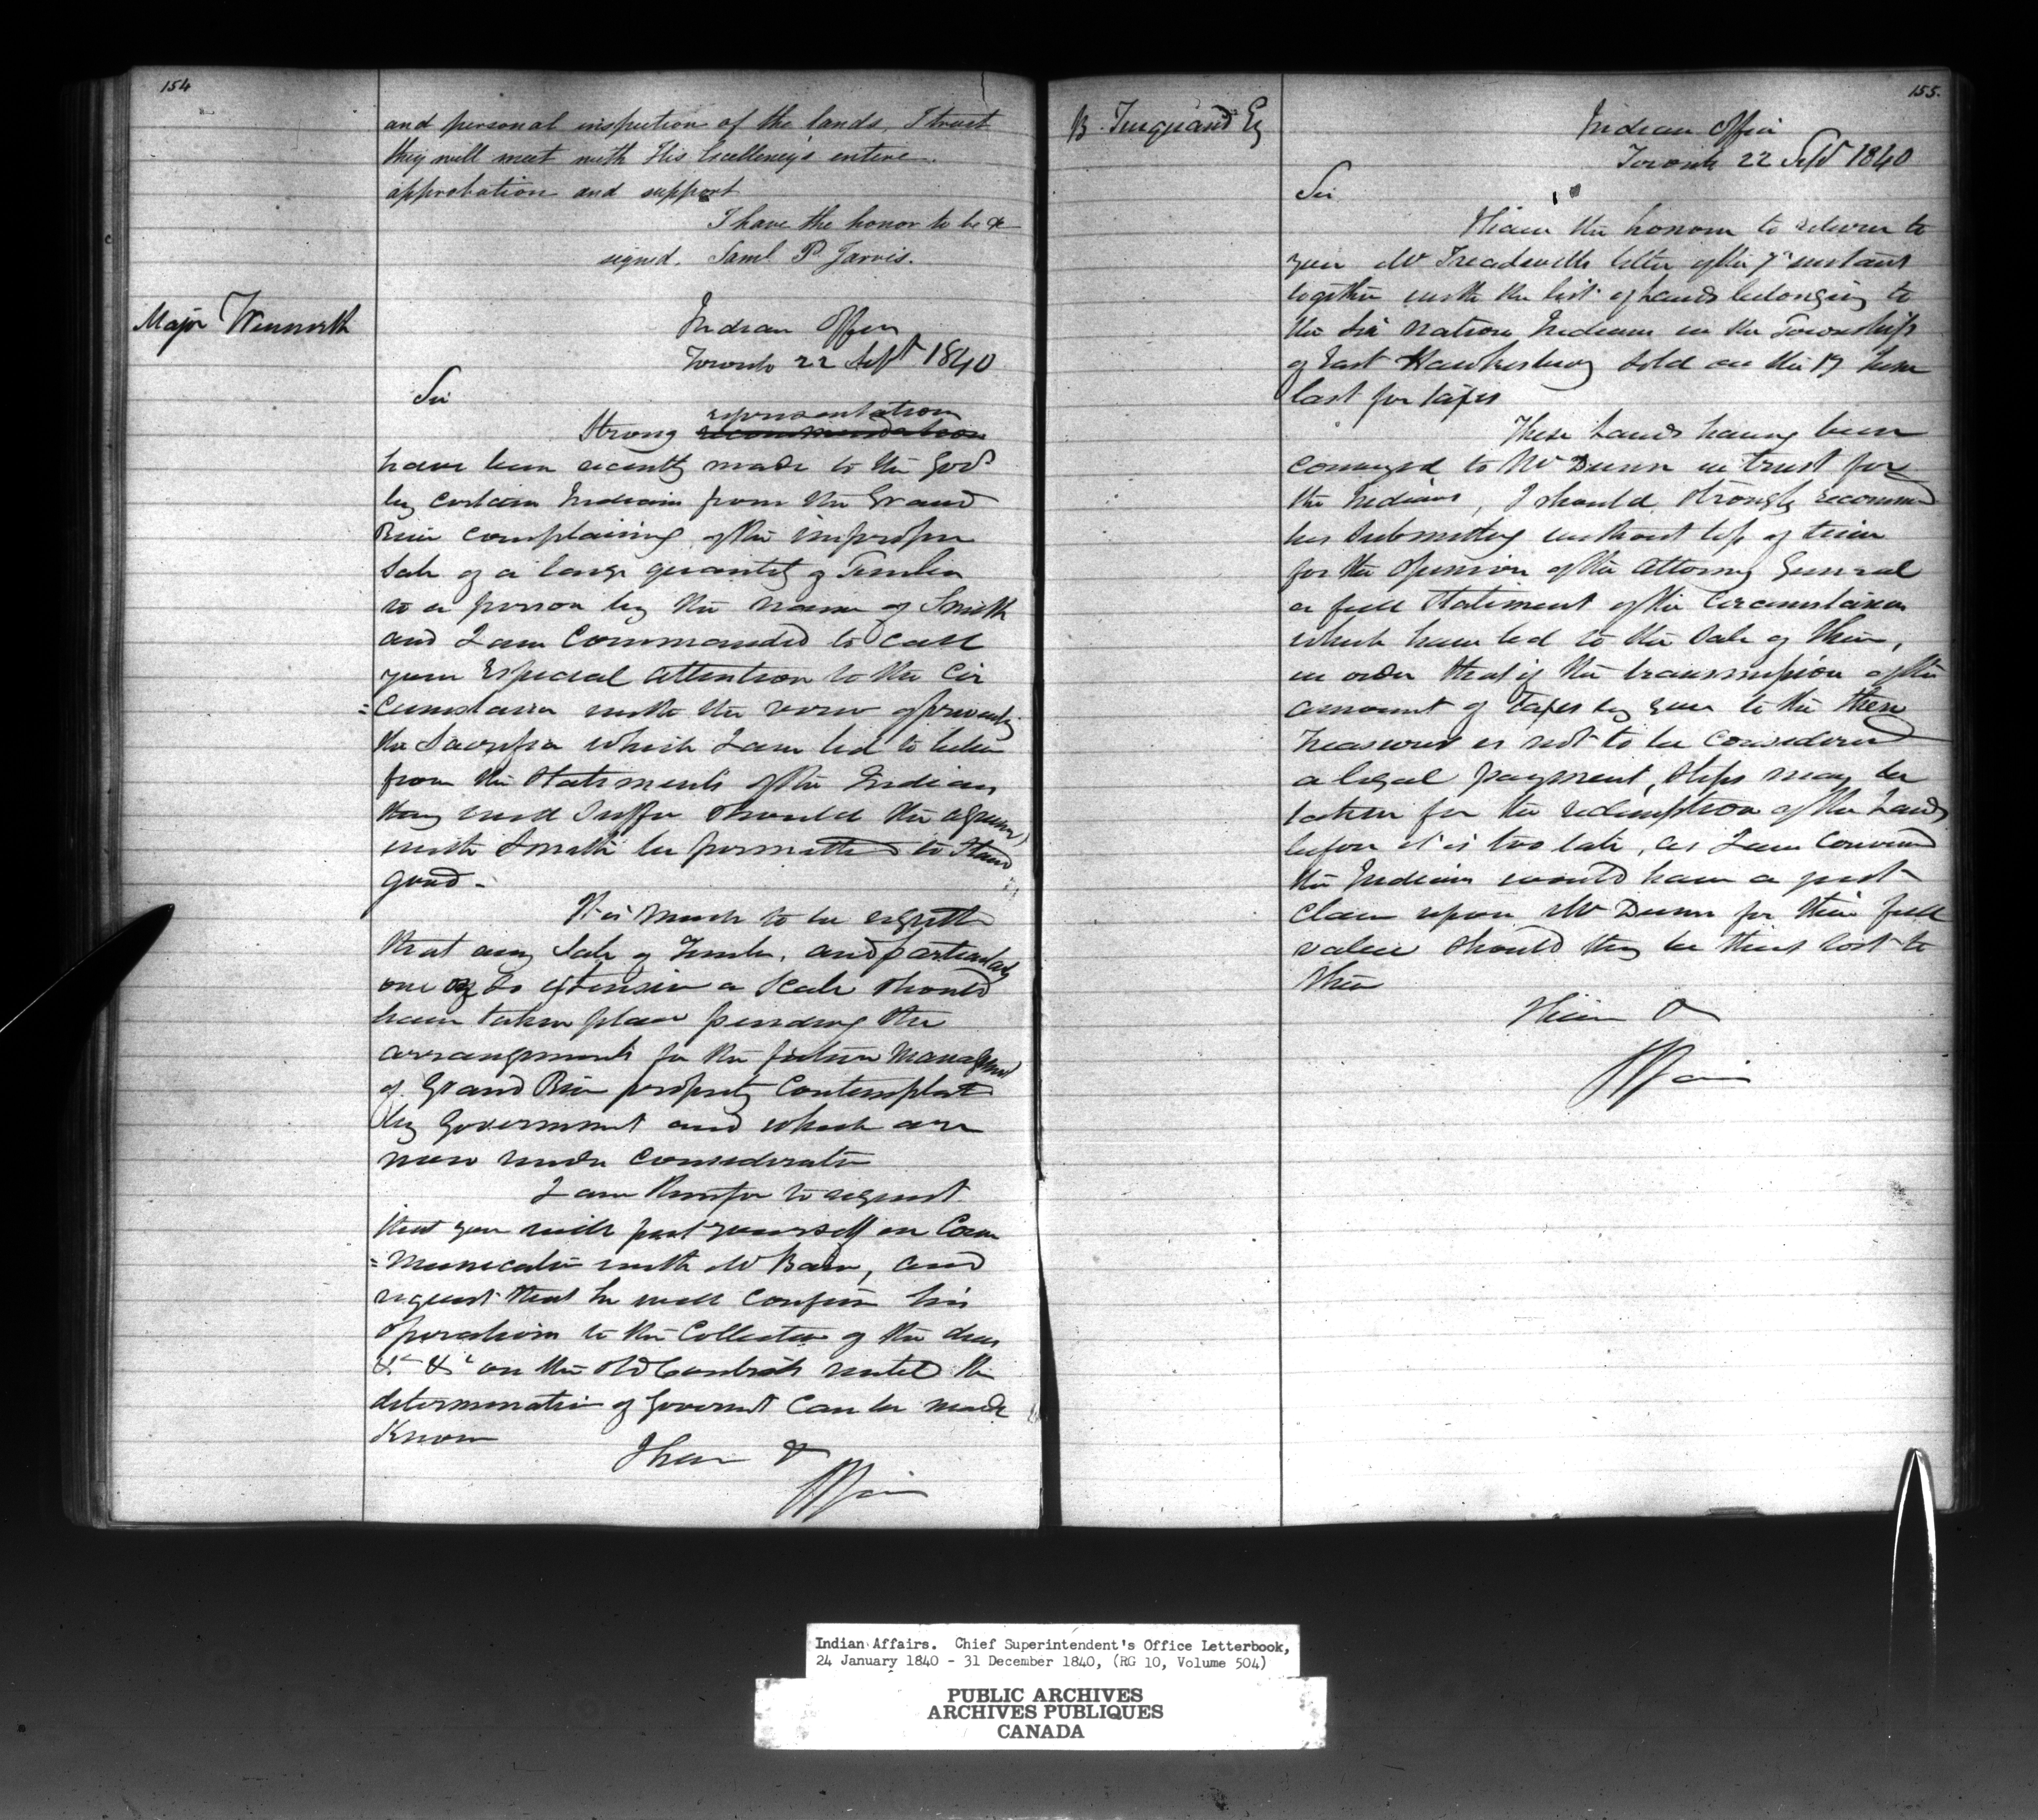 154
and personal inspection of the lands, I trust
they will meet with His Excellency's entire
approbation and support
I have the honor to be &
signed. Saml P. Jarvis.
Major Winniett
Indian Office
Toronto 22 Sept 1840
Sir
representation
Strong recommendation
have been recently made to the Govt
by certain Indians from the Grand
River complaining of the improper
Sale of a large quantity of Timber
to a person by the name of Smith
and I am Commanded to call
your Especial attention to the Cir
=cumstance with the view of preventing
the Sacrifice which I am led to believe
from the Statements of the Indians
they will suffer should the agreemt
with Smith be permitted to stand
good -
It is much to be regretted
that any Sale of Timber, and particularly
one on so extensive a Scale should
have taken place pending the
arrangements for the future Management
of Grand River property Contemplated
by Government and which are
now under Consideration
I am therefore to request
that you will put yourself in Com
=munication with Mr Bain, and
request that he will confine his
operations to the Collection of the dues
&c &c on the old Contracts until the
determination of Governmt can be made
Known
I have &
SPJarvis
155.
B. Turquand Eq
Indian Office
Toronto 22 Sept 1840
Sir
I have the honour to return to
you Mr Treadwells letter of the 7th instant
together with the list of Lands belonging to
the Six Nations Indians in the Township
of East Hawkesbury sold on the 17 June
last for taxes
These Lands having been
conveyed to Mr Dunn in trust for
the Indians, I should strongly recommend
his submitting without loss of time
for the Opinion of the Attorney General
a full Statement of the Circumstances
which have led to the Sale of them,
in order that if the transmission of the
amount of taxes by you to the then
Treasurer is not to be considered
a legal payment, steps may be
taken for the redemption of the Lands
before it is too late, as I am Convinced
the Indians would have a just
Claim upon Mr Dunn for their full
value should they be thus lost to
them
I have &
SPJarvis
Indian Affairs. Chief Superintendent's Office Letterbook,
24 January 1840 - 31 December 1840, (RG 10, Volume 504)
PUBLIC ARCHIVES
ARCHIVES PUBLIQUES
CANADA